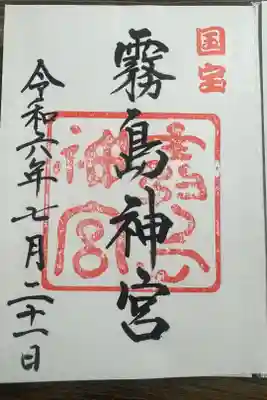 国宝
霧島神宮
令和六年七月二十一日